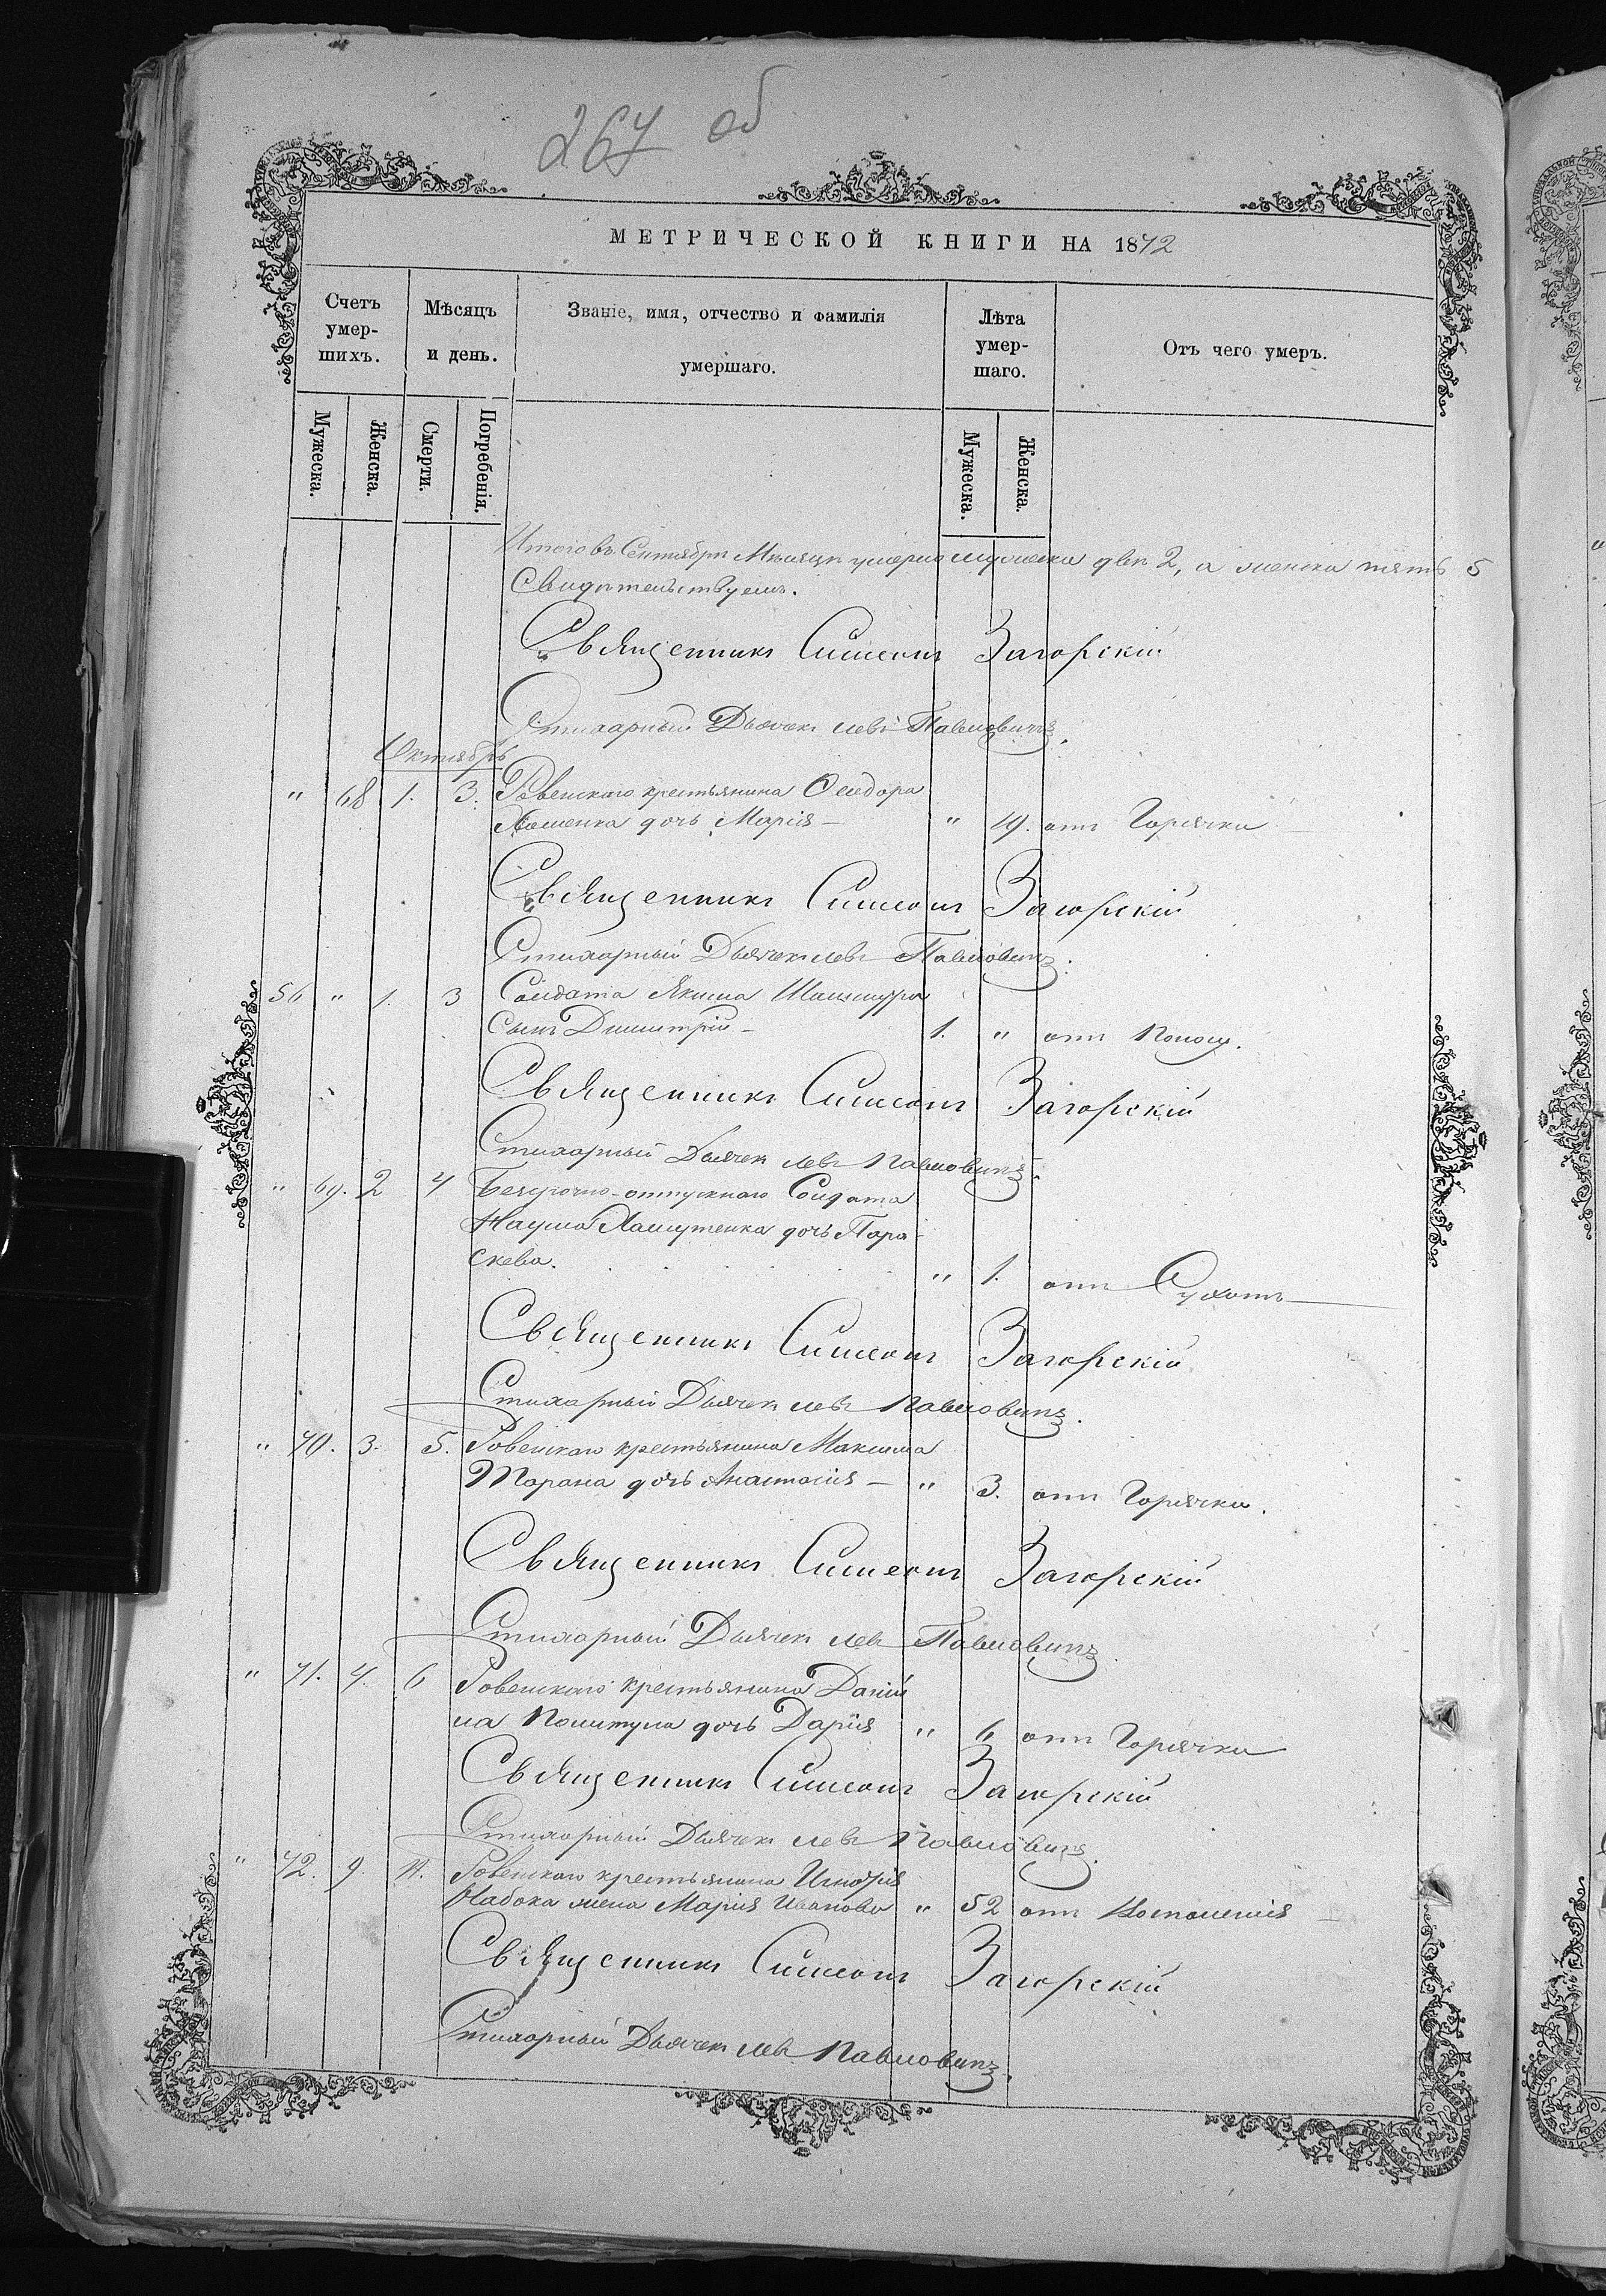 267 об
МЕТРИЧЕСКОЙ КНИГИ НА 1872
Счетъ умер-шихъ.
Мѣсяцъ и день.
Званіе, имя, отчество и фамилія умершаго.
Лѣта умер-шаго.
Отъ чего умеръ.
Мужеска.
Женска.
Смерти.
Погребенія.
Мужеска.
Женска.
Итого въ Сентябрѣ Мѣсяцѣ умерло мужеска два 2, а женска пять 5
Свидѣтельствуемъ.
Священникъ Симеонъ Загорскій
Стихарный Дьячекъ Левъ Павловичъ.
Октябрь
" 68 1. 3. Ровенскаго крестьянина Феодора
Хоменка дочь Марія — " 19. отъ Горячки
Священникъ Симеонъ Загорскій
Стихарный Дьячекъ Левъ Павловичъ.
56 " 1. 3 Солдата Якима
Сынъ Димитрій — 1. " отъ Поносу.
Священникъ Симеонъ Загорскій
Стихарный Дьячекъ Левъ Павловичъ.
" 69. 2 4 Безсрочно-отпускнаго Солдата
Наума дочь Пара-
скева. " 1. отъ Сухотъ
Священникъ Симеонъ Загорскій
Стихарный Дьячекъ Левъ Павловичъ.
" 70. 3. 5. Ровенскаго крестьянина Максима
Тарана дочь Анастасія — " 3. отъ Горячки.
Священникъ Симеонъ Загорскій
Стихарный Дьячекъ Левъ Павловичъ
" 71. 4. 6 Ровенскаго крестьянина Даніи
ла дочь Дарія " 6 отъ Горячки
Священникъ Симеонъ Загорскій
Стихарный Дьячекъ Левъ Павловичъ.
" 72. 9. 11. Ровенскаго крестьянина
Набока жена Марія Иванова " 52 отъ Воспаленія
Священникъ Симеонъ Загорскій
Стихарный Дьячекъ Левъ Павловичъ.